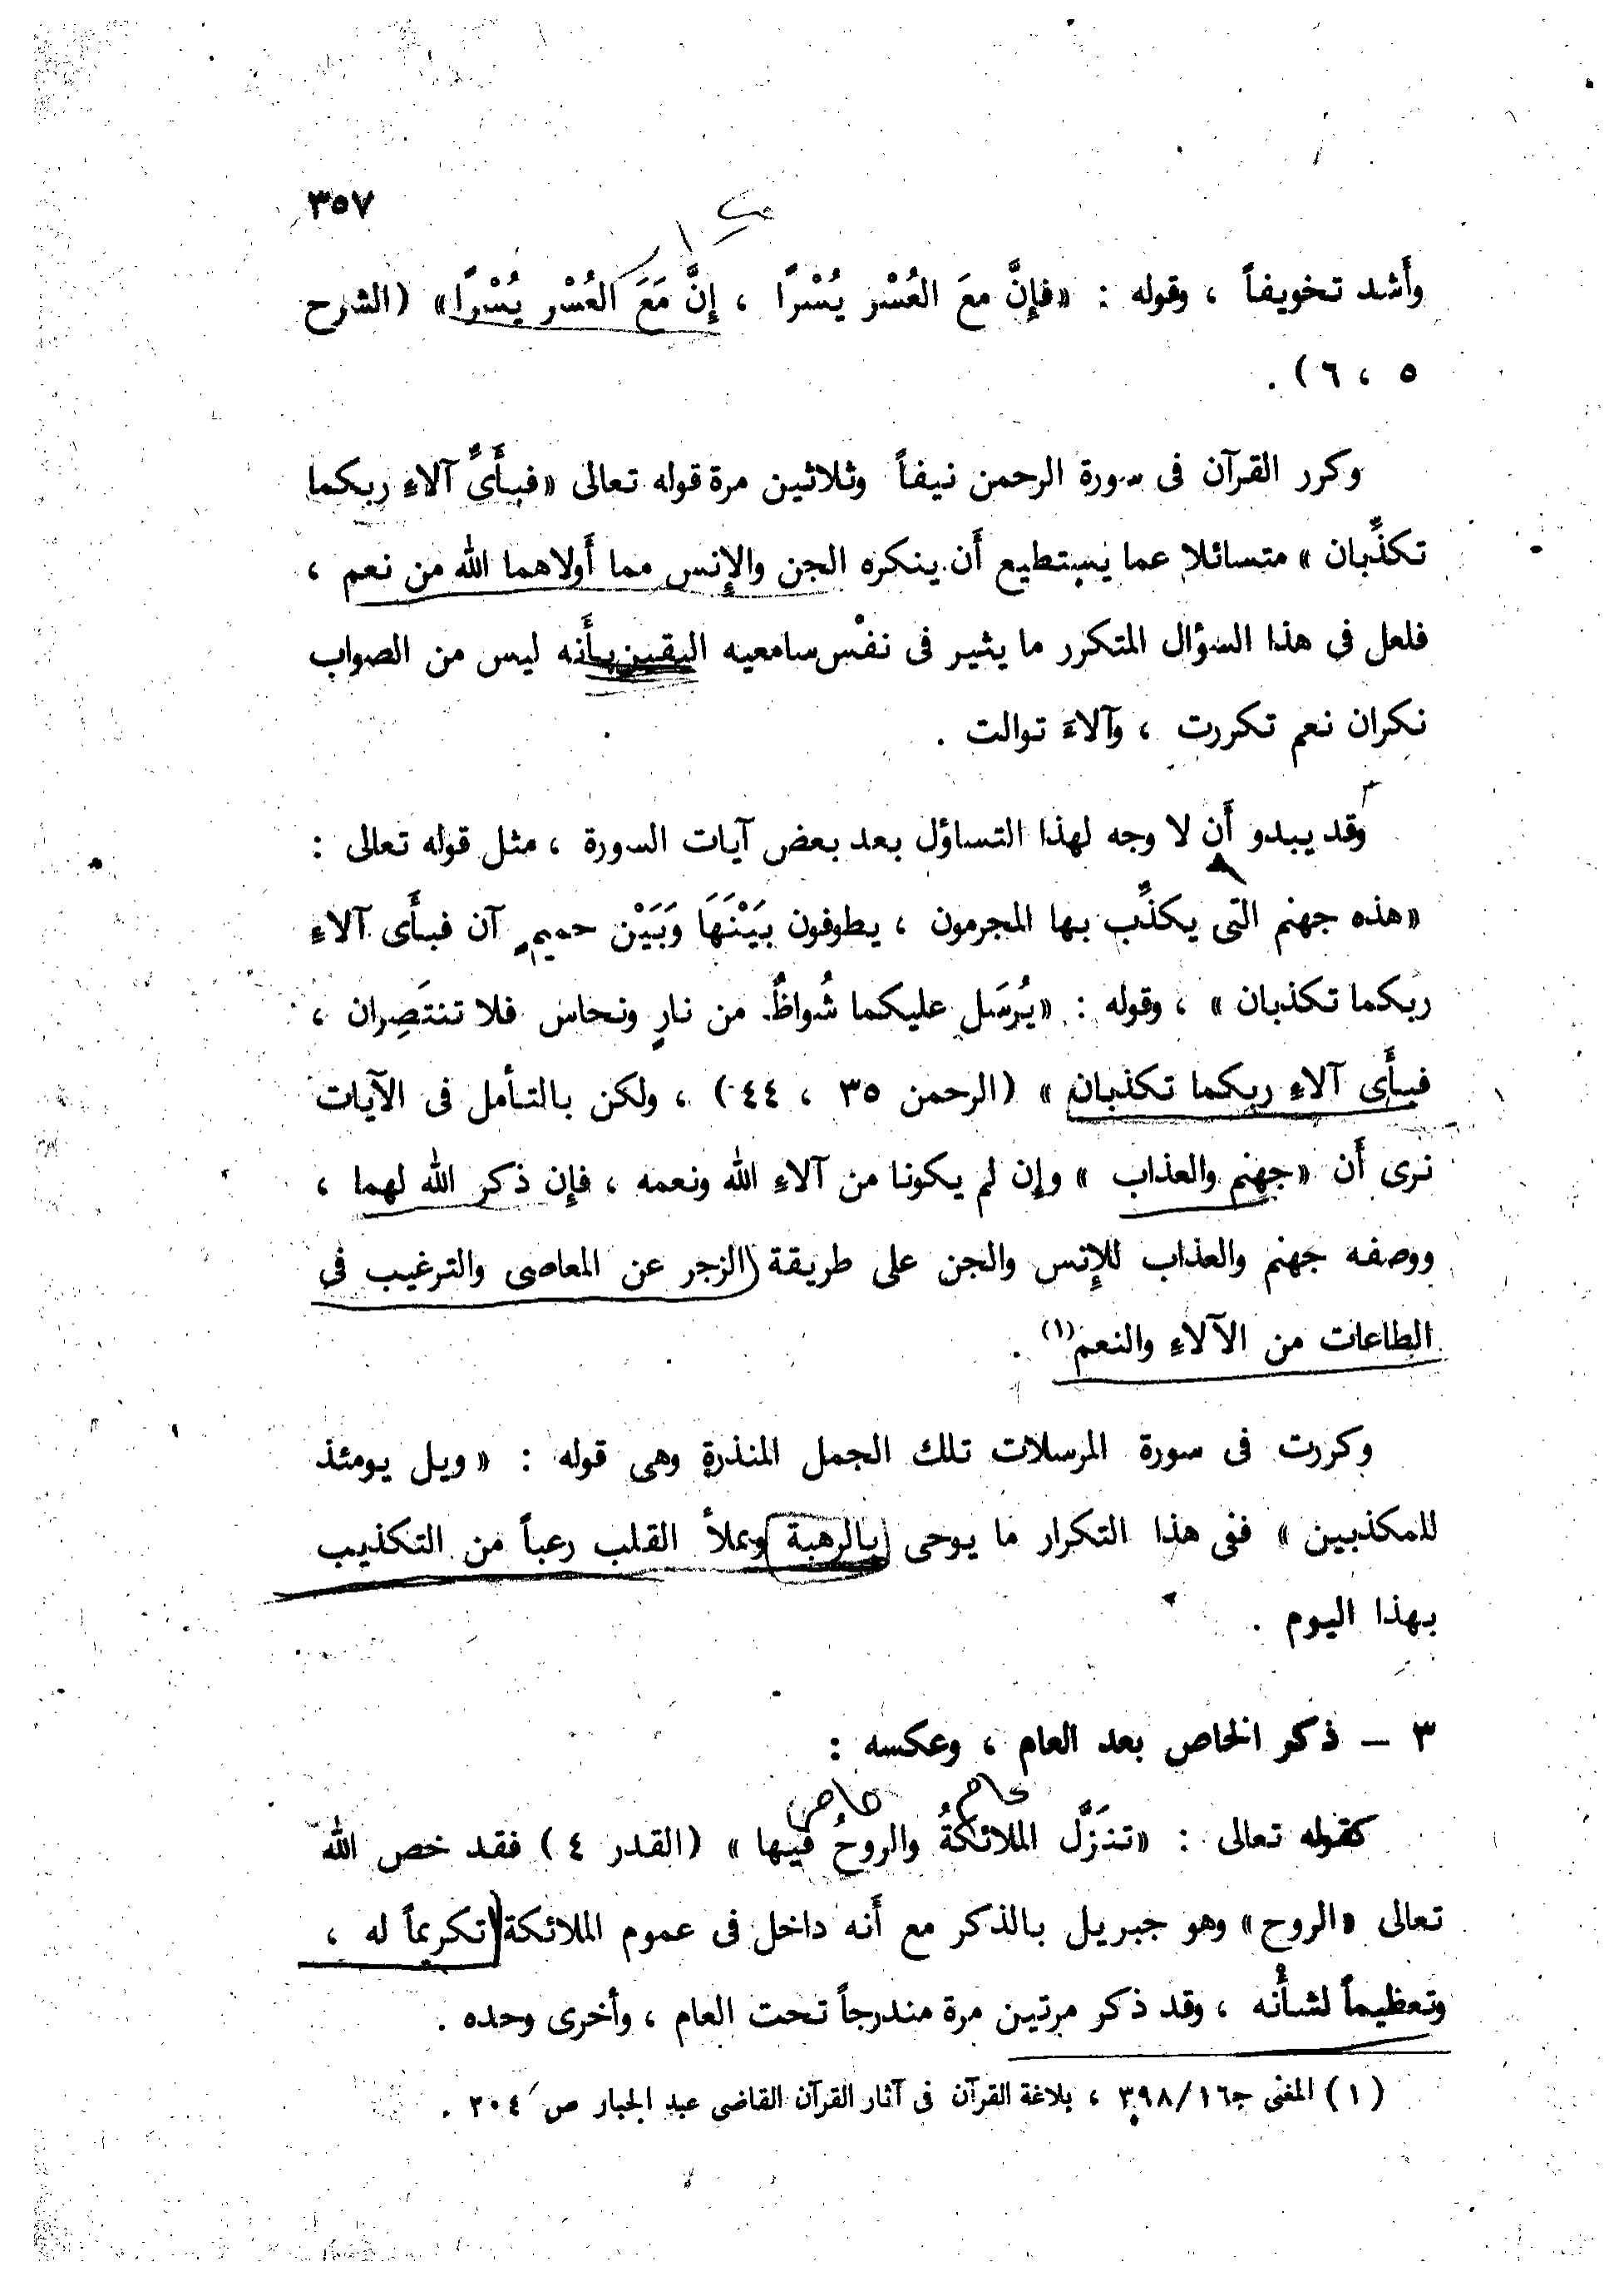 ٣٥٧
وأَشد تخويفاً ، وقوله : «فإِنَّ معَ العُسْر يُسْرًا ، إِنَّ مَعَ العُسْر يُسْرًا» (الشرح
٥ ، ٦) .
وكرر القرآن فى سورة الرحمن نيفاً وثلاثين مرة قوله تعالى «فبأَىِّ آلاءِ ربكما
تكذِّبان » متسائلا عما يستطيع أَن ينكره الجن والإِنس مما أَولاهما الله من نعم ،
فلعل فى هذا السؤال المتكرر ما يثير فى نفْس سامعيه اليقين بأَنه ليس من الصواب
نكران نعم تكررت ، وآلاءَ توالت .
وقد يبدو أَن لا وجه لهذا التساؤل بعد بعض آيات السورة ، مثل قوله تعالى :
«هذه جهنم التى يكذِّب بها المجرمون ، يطوفون بَيْنَهَا وَبَيْن حميمٍ آن فبأَى آلاءِ
ربكما تكذبان » ، وقوله : «يُرسَل عليكما شُواظٌ من نارٍ ونحاس فلا تنتَصِران ،
فبأَى آلاءِ ربكما تكذبان » (الرحمن ٣٥ ، ٤٤) ، ولكن بالتأمل فى الآيات
نرى أَن «جهنم والعذاب » وإن لم يكونا من آلاءِ الله ونعمه ، فإِن ذكر الله لهما ،
ووصفه جهنم والعذاب للإِنس والجن على طريقة (الزجر عن المعاصى والترغيب فى
الطاعات من الآلاءِ والنعم(١) .
وكررت فى سورة المرسلات تلك الجمل المنذرة وهى قوله : «ويل يومئذ
للمكذبين » ففى هذا التكرار ما يوحى بالرهبة ويملأ القلب رعباً من التكذيب
بهذا اليوم .
٣ – ذكر الخاص بعد العام ، وعكسه :
عام خاص
كقوله تعالى : «تنزَّل الملائكةُ والروحُ فيها » (القدر ٤) فقد خص الله
تعالى «الروح» وهو جبريل بالذكر مع أَنه داخل فى عموم الملائكة (تكريماً له ،
وتعظيماً لشأْنه ، وقد ذكر مرتين مرة مندرجاً تحت العام ، وأخرى وحده .
(١) المغنى ج١٦/٣٩٨ ، بلاغة القرآن فى آثار القرآن القاضى عبد الجبار ص ٣٠٤ .